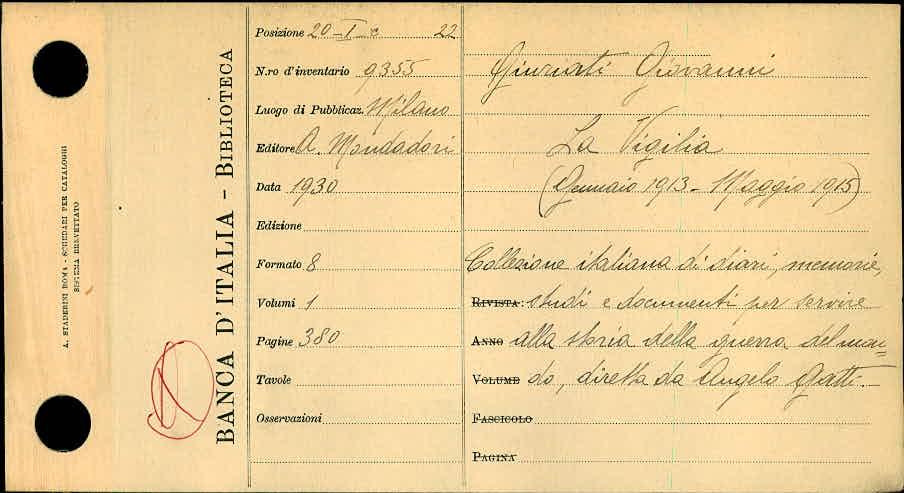 A. STADERINI ROMA - SCHEDARI PER CATALOGHI
SISTEMA BREVETTATO
BANCA D'ITALIA - BIBLIOTECA
Posizione 20-I-c 22
N.ro d'inventario 9355
Luogo di Pubblicaz. Milano
Editore A. Mondadori
Data 1930
Edizione
Formato 8
Volumi 1
Pagine 380
Tavole
Osservazioni
Giuriati Giovanni
La Vigilia
(Gennaio 1913 - Maggio 1915)
Collezione italiana di diari, memorie,
RIVISTA: studi e documenti per servire
ANNO alla storia della guerra del mon-
VOLUME do, diretta da Angelo Gatti.-
FASCICOLO
PAGINA